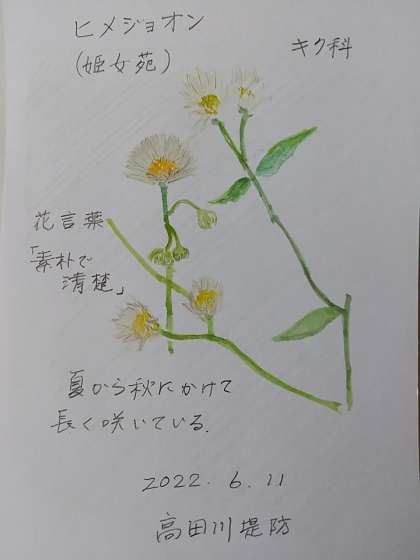 ヒメジョオン
(姫女苑)
キク科
花言葉
「素朴で
清楚」
夏から秋にかけて
長く咲いている.
2022. 6. 11
高田川堤防